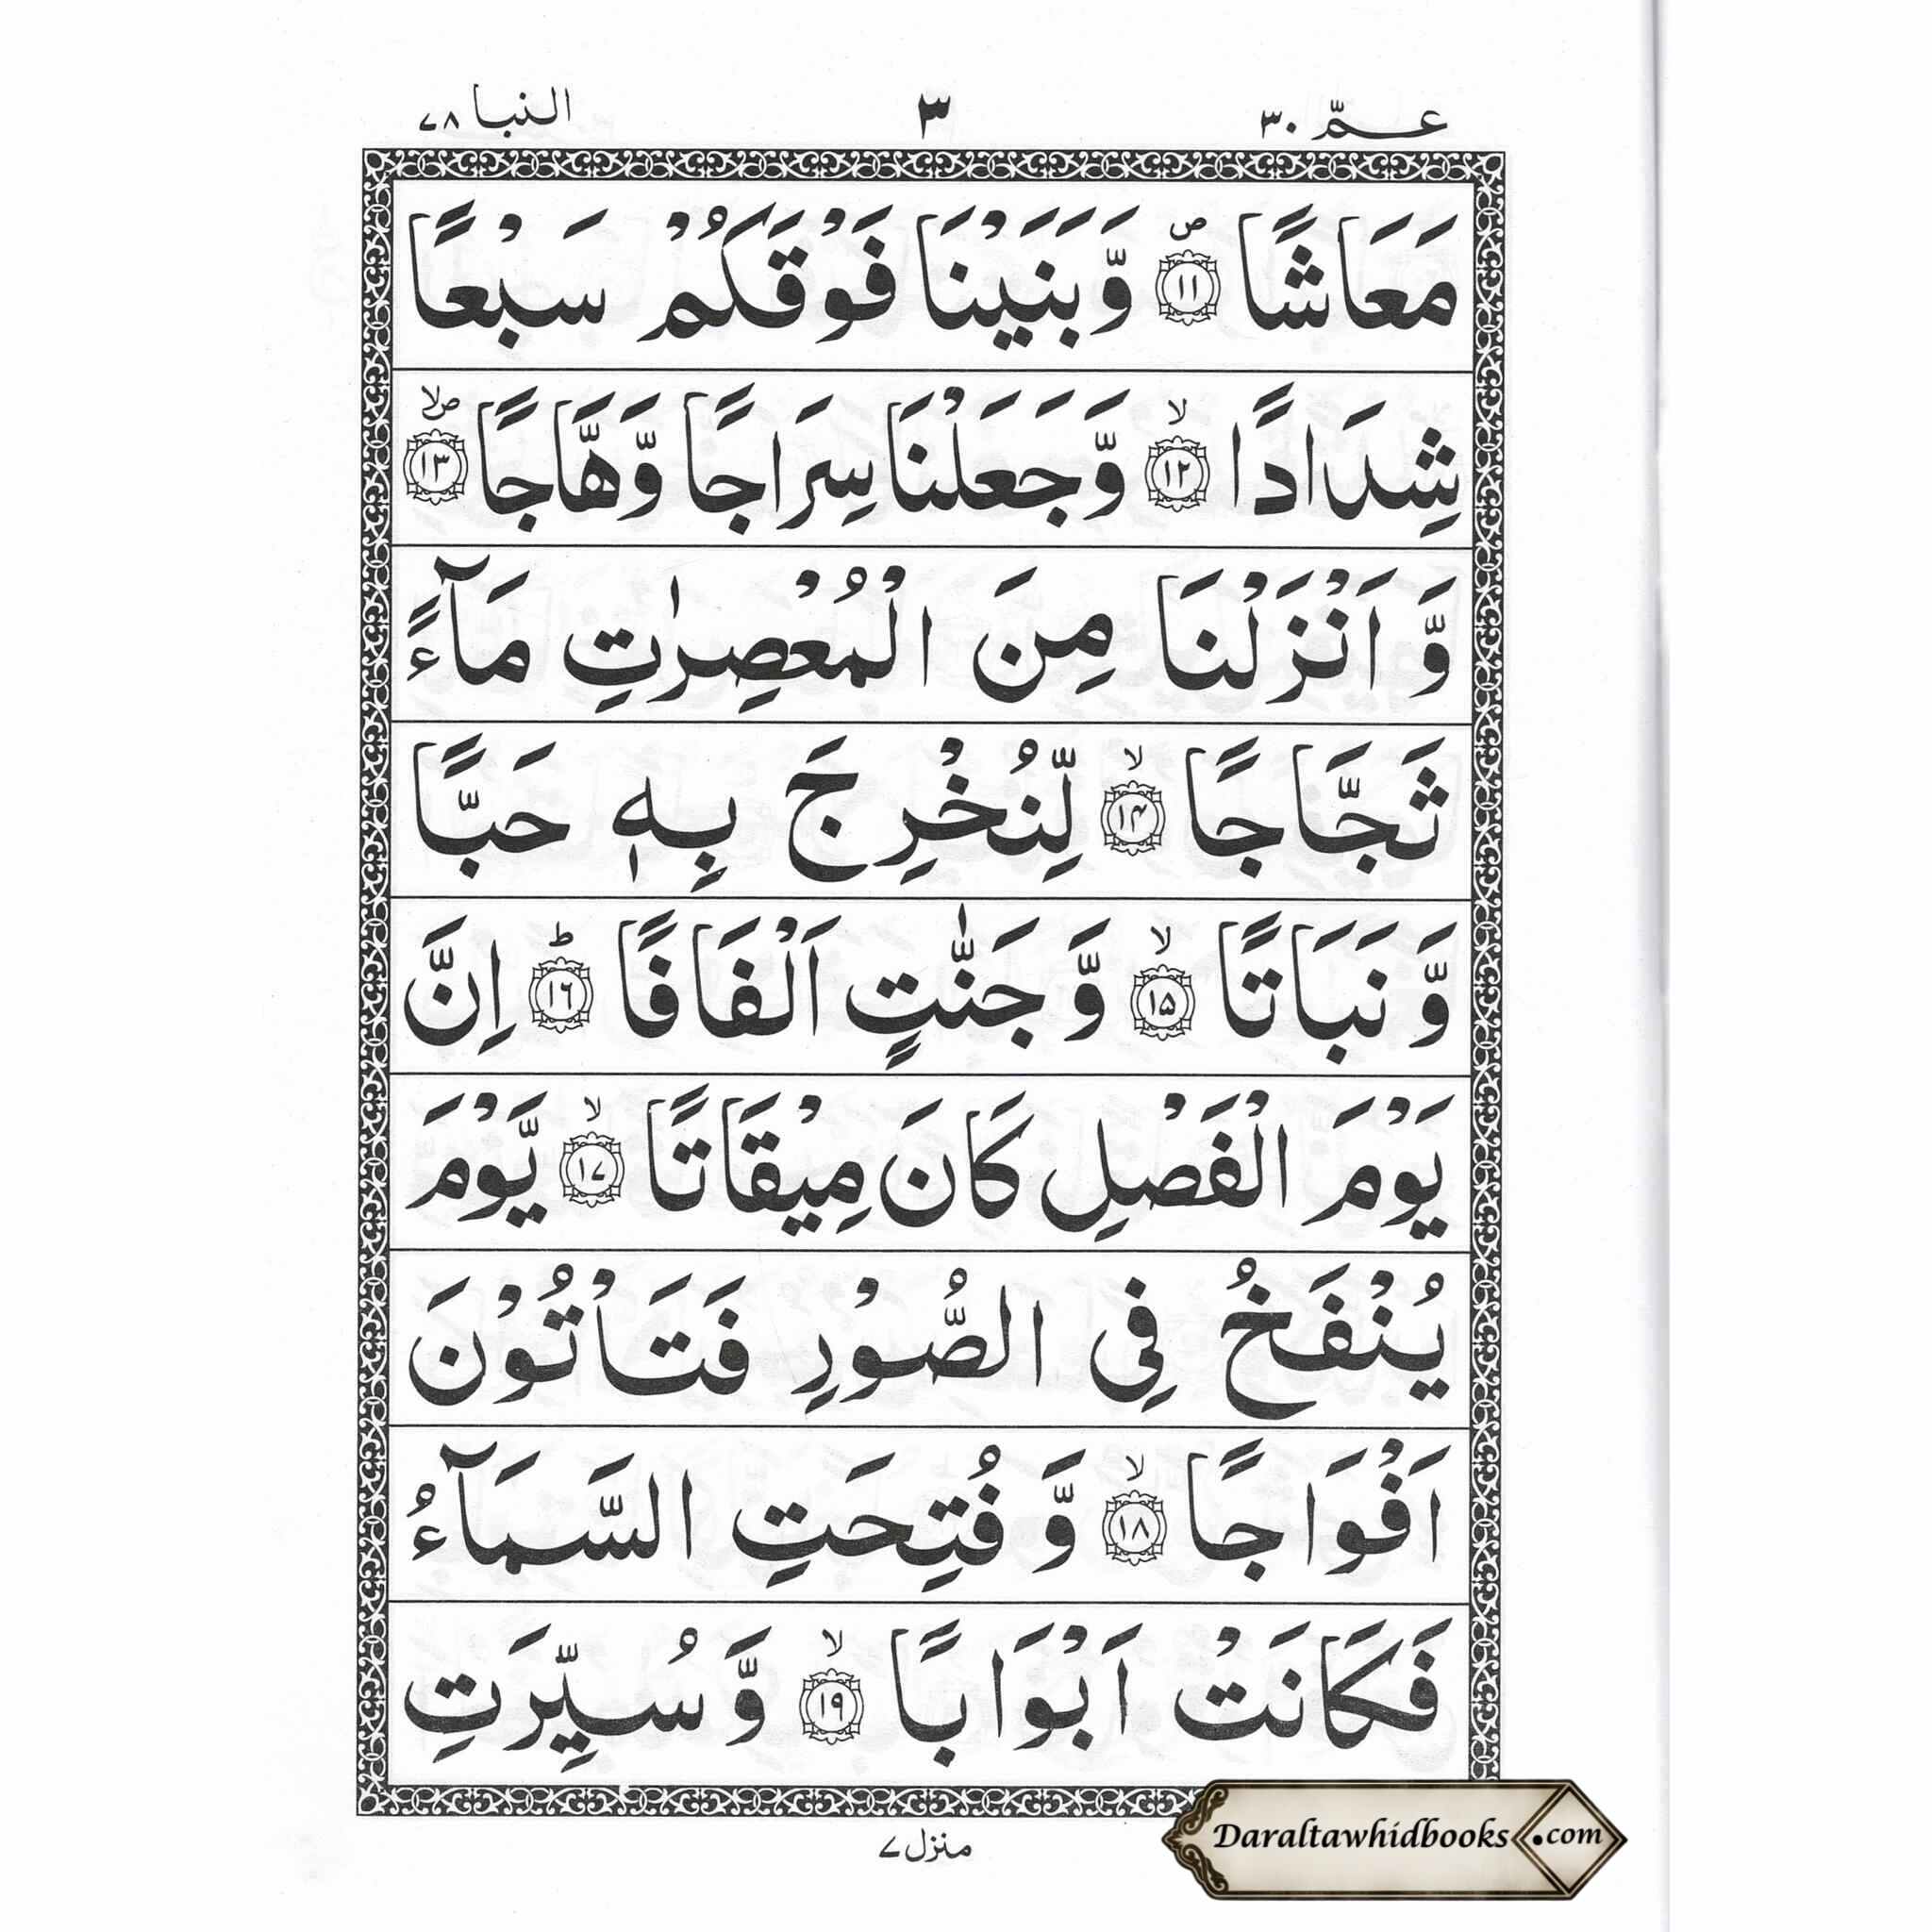 عمّ ٣٠
٣
النبا ٧٨
مَعَاشًا ۝١١۪ۙ وَّبَنَيْنَا فَوْقَكُمْ سَبْعًا
شِدَادًا ۝١٢ۙ وَّجَعَلْنَا سِرَاجًا وَّهَّاجًا ۝١٣
وَّ اَنْزَلْنَا مِنَ الْمُعْصِرٰتِ مَآءً
ثَجَّاجًا ۝١٤ۙ لِّنُخْرِجَ بِهٖ حَبًّا
وَّ نَبَاتًا ۝١٥ۙ وَّ جَنّٰتٍ اَلْفَافًا ۝١٦ؕ اِنَّ
يَوْمَ الْفَصْلِ كَانَ مِيْقَاتًا ۝١٧ۙ يَّوْمَ
يُنْفَخُ فِي الصُّوْرِ فَتَاْتُوْنَ
اَفْوَاجًا ۝١٨ۙ وَّ فُتِحَتِ السَّمَآءُ
فَكَانَتْ اَبْوَابًا ۝١٩ۙ وَّ سُيِّرَتِ
منزل ٧
Daraltawhidbooks.com